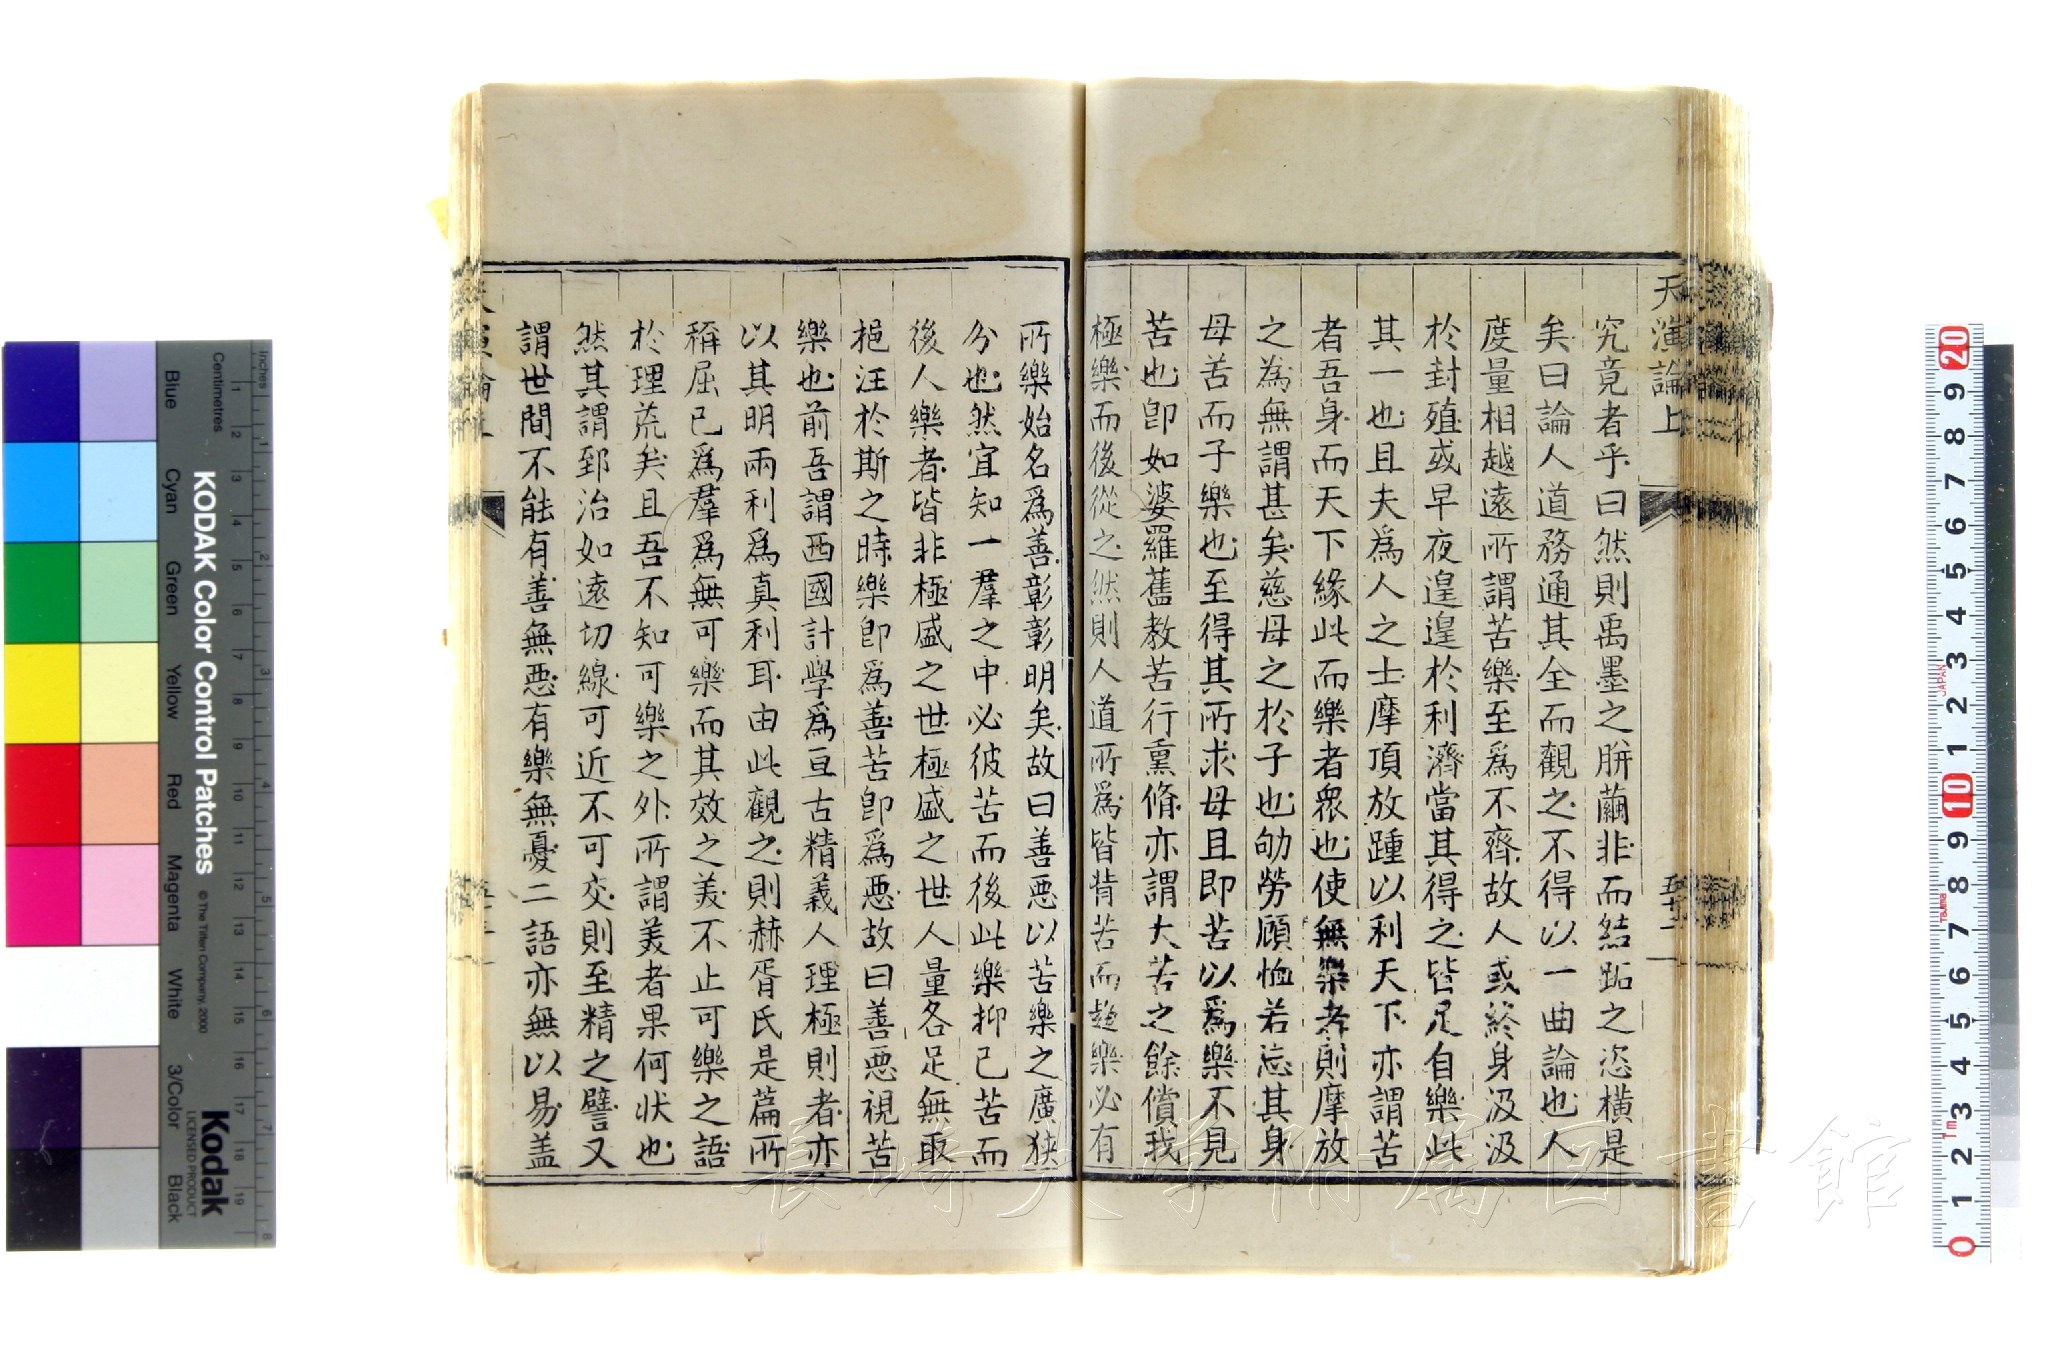 天演論上
究竟者乎曰然則禹墨之胼繭非而結跖之恣橫是
矣曰論人道務通其全而觀之不得以一曲論也人
度量相越遠所謂苦樂至爲不齊故人或終身汲汲
於封殖或早夜遑遑於利濟當其得之皆足自樂此
其一也且夫爲人之士摩頂放踵以利天下亦謂苦
者吾身而天下緣此而樂者衆也使無樂者則摩放
之為無謂甚矣慈母之於子也劬勞顧恤若忘其身
母苦而子樂也至得其所求母且即苦以爲樂不見
苦也卽如婆羅舊教苦行熏脩亦謂大苦之餘償我
極樂而後從之然則人道所爲皆背苦而趨樂必有
所樂始名爲善彰彰明矣故曰善惡以苦樂之廣狹
分也然宜知一羣之中必彼苦而後此樂抑已苦而
後人樂者皆非極盛之世極盛之世人量各足無取
挹注於斯之時樂卽爲善苦卽爲惡故曰善惡視苦
樂也前吾謂西國計學爲亘古精義人理極則者亦
以其明兩利爲真利耳由此觀之則赫胥氏是篇所
稱屈已爲羣爲無可樂而其效之美不止可樂之語
於理荒矣且吾不知可樂之外所謂美者果何狀也
然其謂郅治如遠切線可近不可交則至精之譬又
謂世間不能有善無惡有樂無憂二語亦無以易盖
長崎大学附属図書館
KODAK Color Control Patches
© The Tiffen Company, 2000
Kodak
LICENSED PRODUCT
Centimetres
Inches
Blue
Cyan
Green
Yellow
Red
Magenta
White
3/Color
Black
JAPAN
Tajima
1m